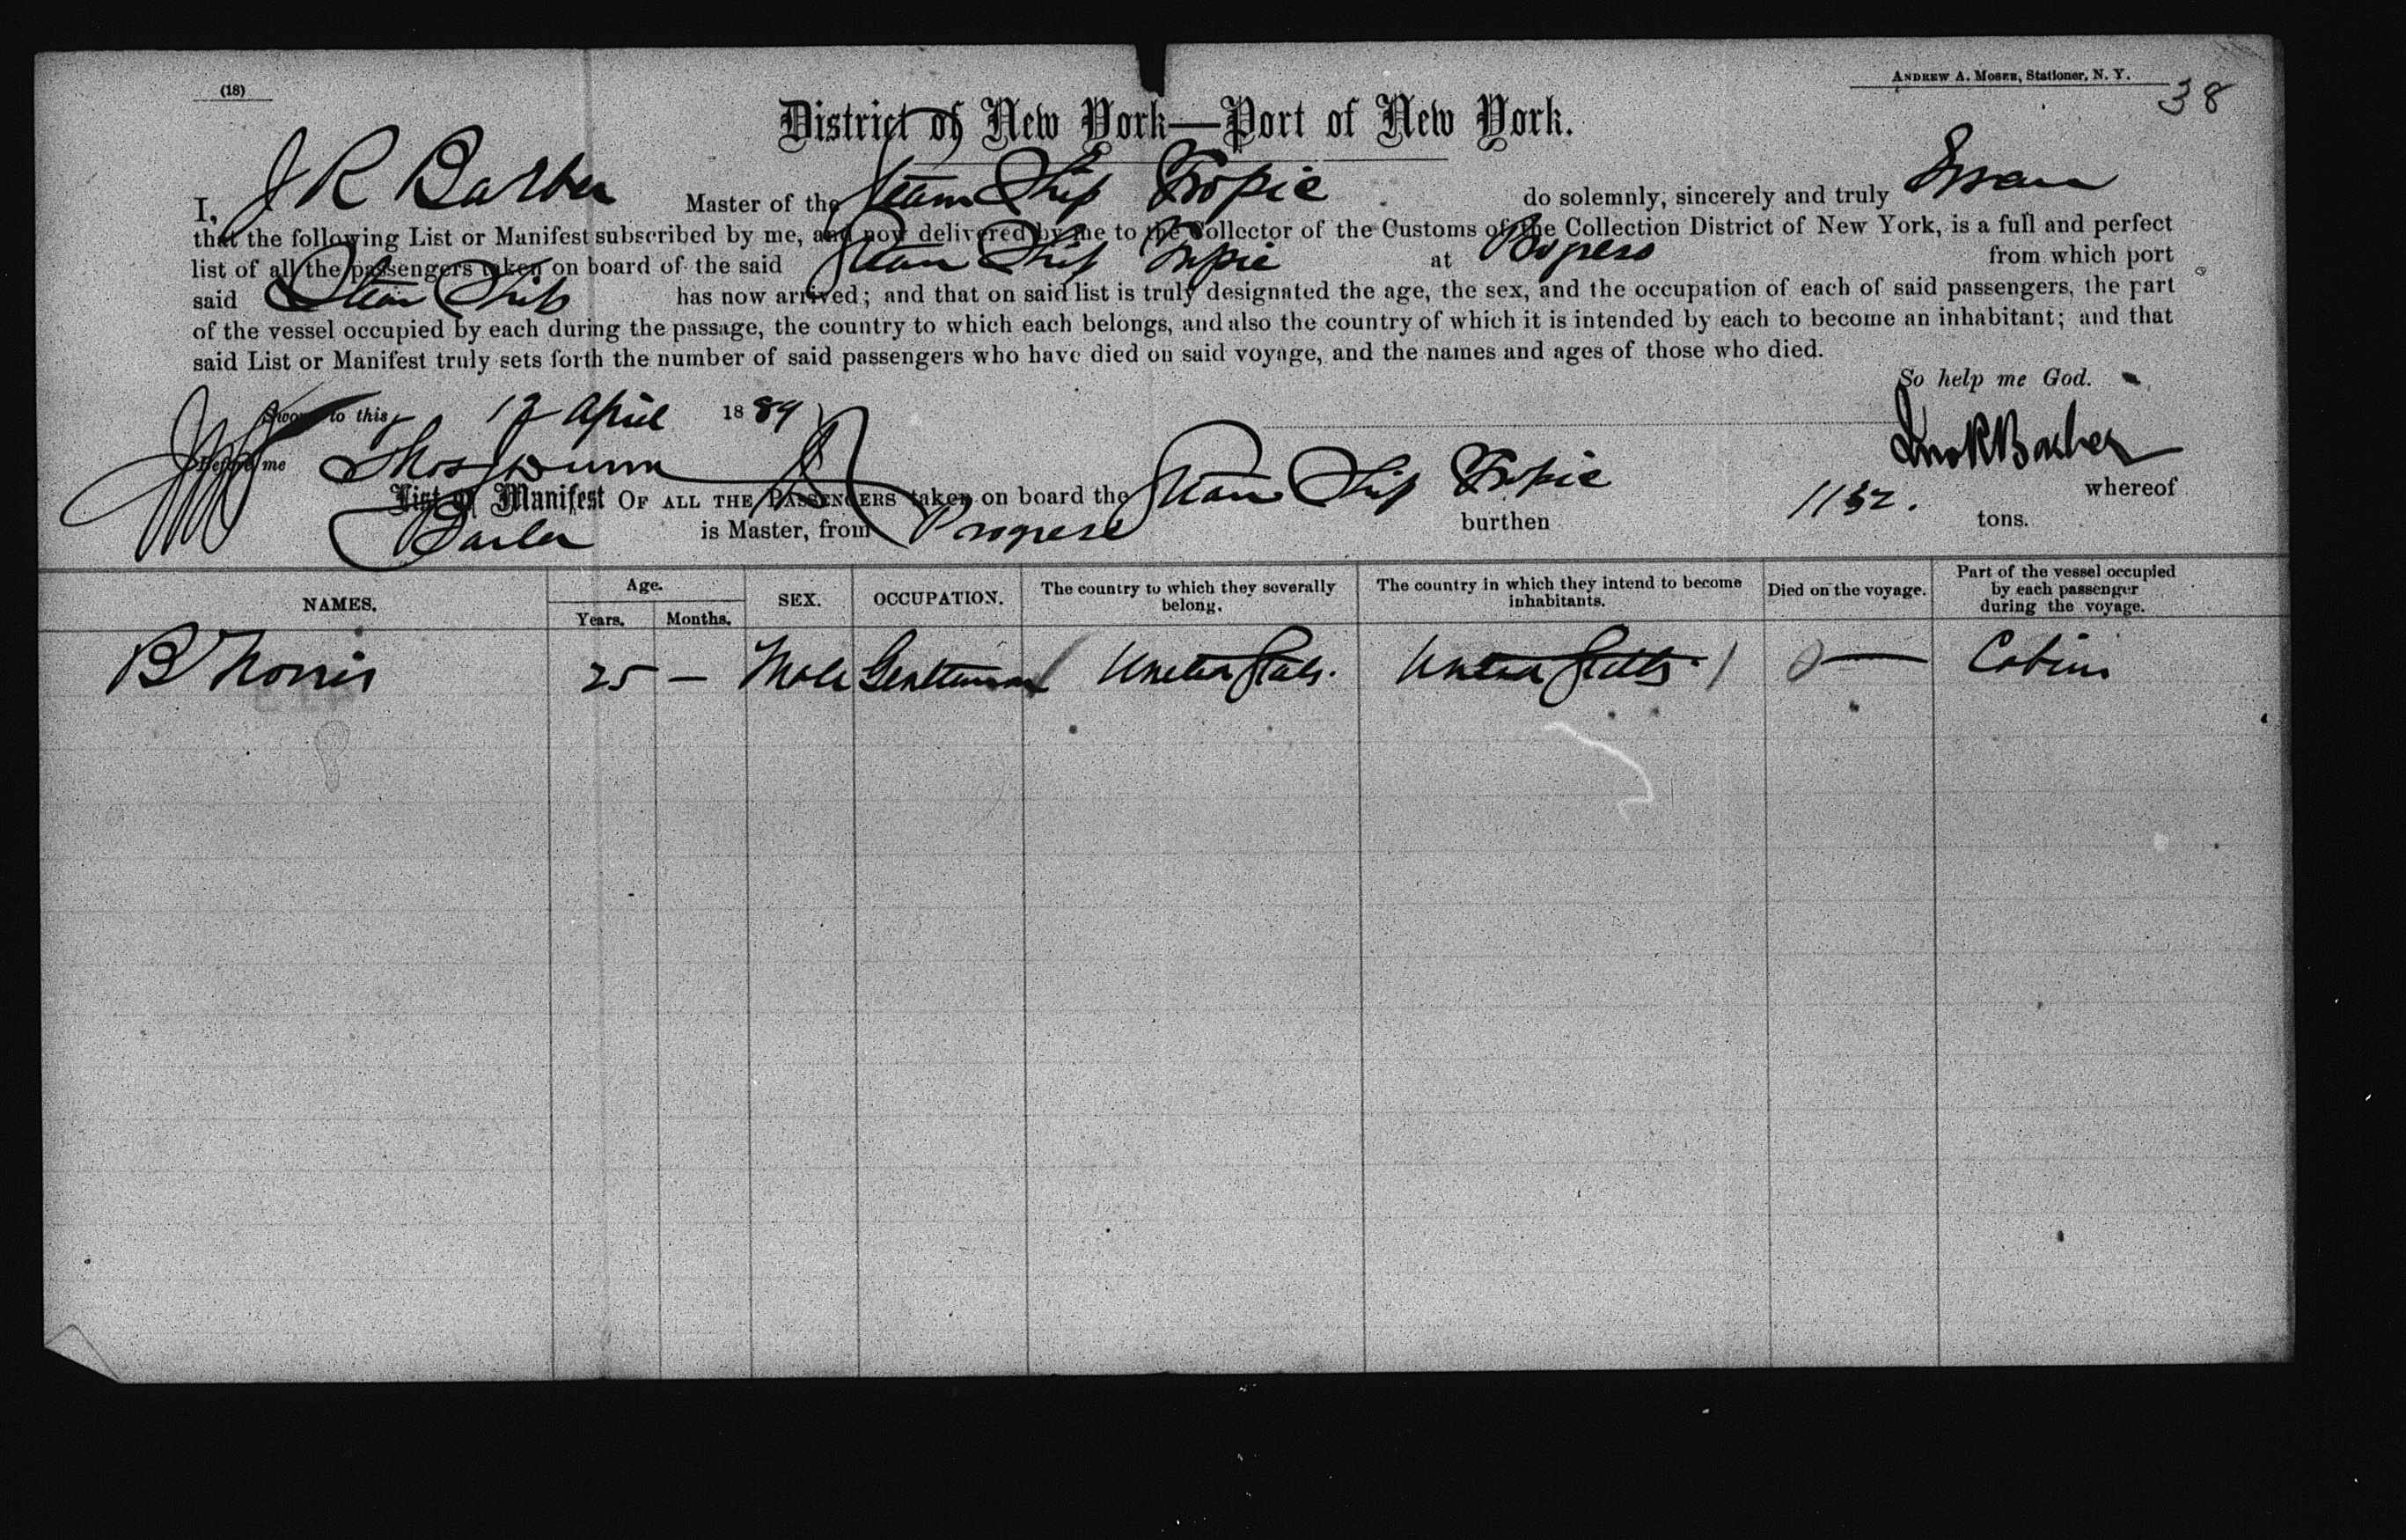 (18)
ANDREW A. MOSER, Stationer, N. Y.
38
District of New York—Port of New York.
I, J R Barber Master of the Steam Ship Tropic do solemnly, sincerely and truly Swear
that the following List or Manifest subscribed by me, and now delivered by me to the Collector of the Customs of the Collection District of New York, is a full and perfect
list of all the passengers taken on board of the said Steam Ship Tropic at Progreso from which port
said Steam Ship has now arrived; and that on said list is truly designated the age, the sex, and the occupation of each of said passengers, the part
of the vessel occupied by each during the passage, the country to which each belongs, and also the country of which it is intended by each to become an inhabitant; and that
said List or Manifest truly sets forth the number of said passengers who have died on said voyage, and the names and ages of those who died.
So help me God.
Sworn to this 12 April 1889
Jno R Barber
Before me Thos Dunn
List or Manifest OF ALL THE PASSENGERS taken on board the Steam Ship Tropic whereof
Barber is Master, from Progreso burthen 1132. tons.
NAMES. Age. Years. Months. SEX. OCCUPATION. The country to which they severally belong. The country in which they intend to become inhabitants. Died on the voyage. Part of the vessel occupied by each passenger during the voyage.
B Norris 25 — Male Gentleman United States. United States. 0— Cabin